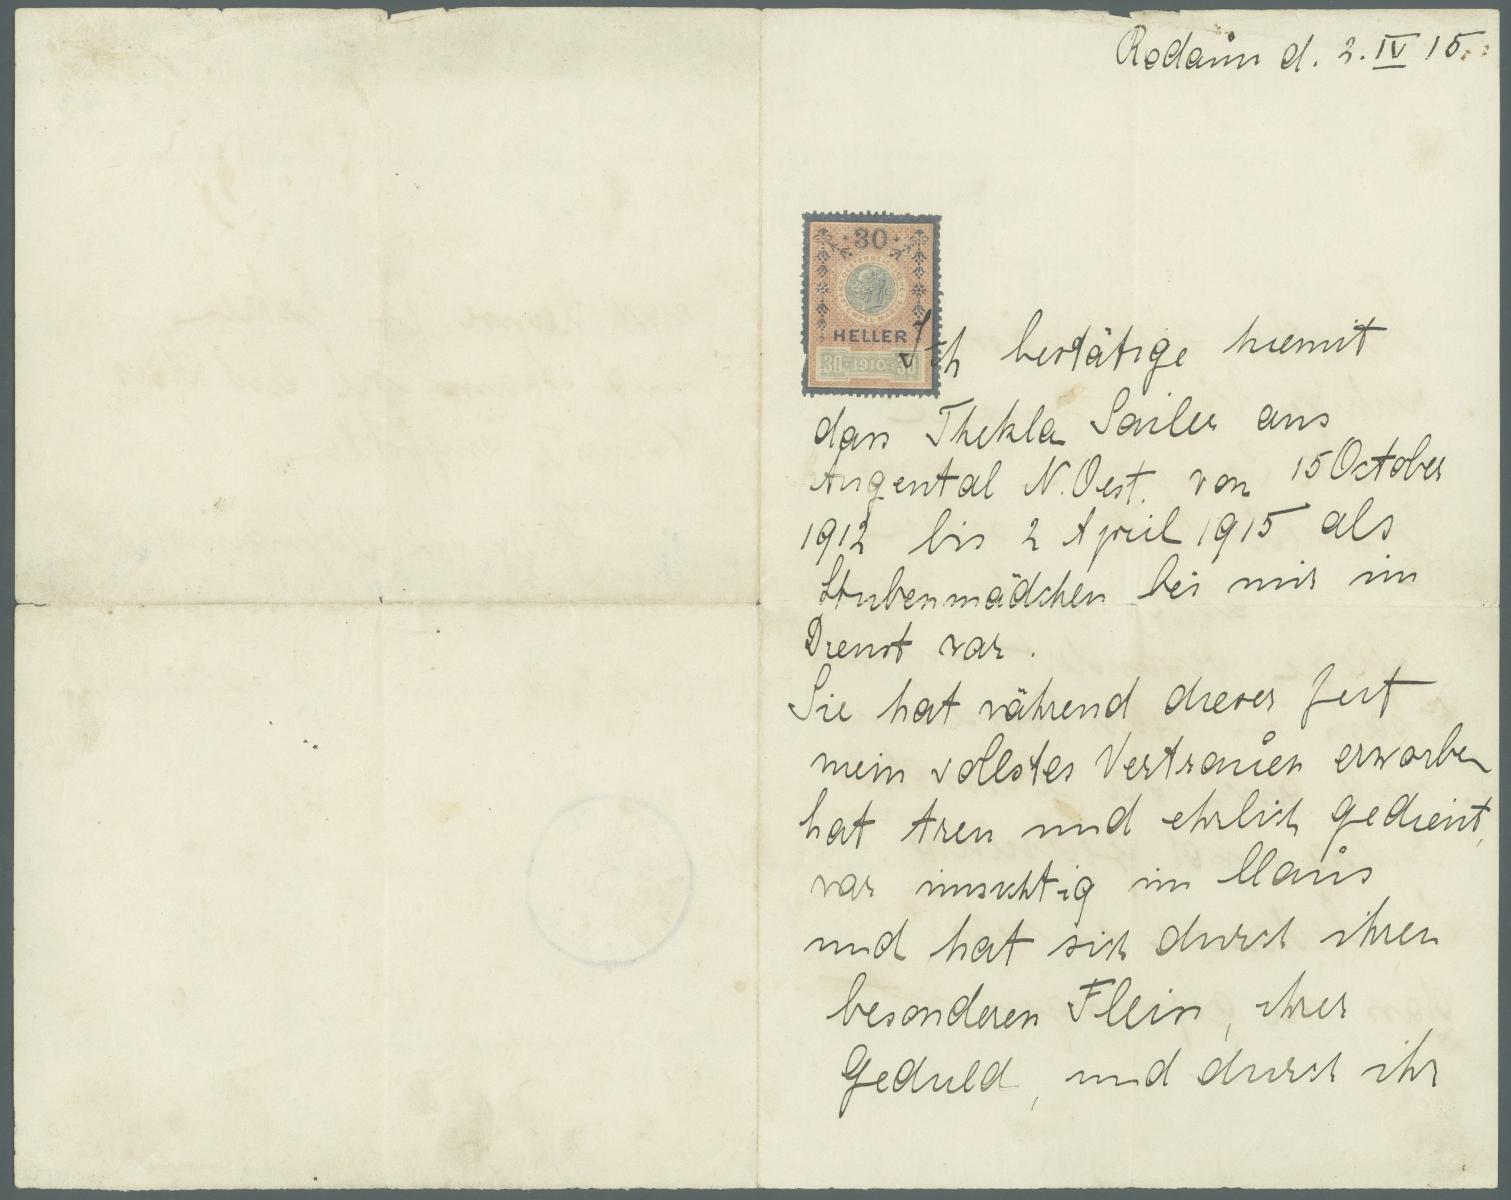 Rodaun d. 2. IV 15.
30
HELLER
30 1910 30
Ich bestätige hiemit
dass Thekla Sailer aus
Augental N. Oest. von 15 October
1912 bis 2 April 1915 als
Stubenmädchen bei mir im
Dienst war.
Sie hat während dieser Zeit
mein vollstes Vertrauen erworben
hat treu und ehrlich gedient,
war umsichtig im Haus
und hat sich durch ihren
besonderen Fleiss, ihrer
Geduld, und durch ihr